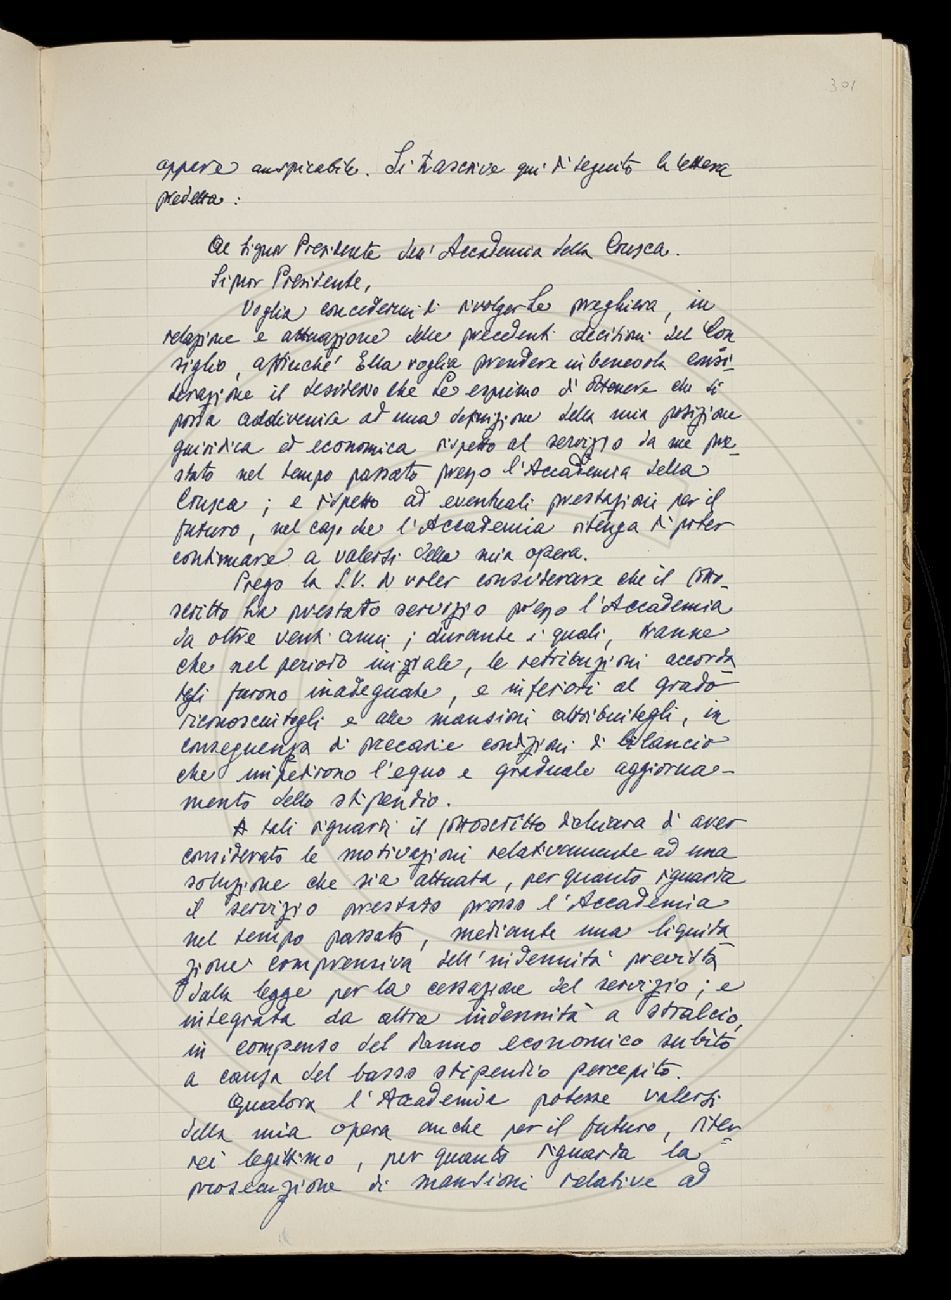 301
appare auspicabile. Si trascrive qui di seguito la lettera
predetta:
Al Signor Presidente dell'Accademia della Crusca.
Signor Presidente,
Voglia concedermi di rivolgerLe preghiera, in
relazione e attuazione delle precedenti decisioni del Con
siglio, affinché Ella voglia prendere in benevola consi-
derazione il desiderio che Le esprimo di ottenere che si
possa addivenire ad una definizione della mia posizione
giuridica ed economica rispetto al servizio da me pre-
stato nel tempo passato presso l'Accademia della
Crusca; e rispetto ad eventuali prestazioni per il
futuro, nel caso che l'Accademia ritenga di poter
continuare a valersi della mia opera.
Prego la S.V. di voler considerare che il sotto-
scritto ha prestato servizio presso l'Accademia
da oltre venti anni; durante i quali, tranne
che nel periodo iniziale, le retribuzioni accorda-
tegli furono inadeguate, e inferiori al grado
riconosciutogli e alle mansioni attribuitegli, in
conseguenza di precarie condizioni di bilancio
che impedirono l'equo e graduale aggiorna-
mento dello stipendio.
A tali riguardi il sottoscritto dichiara di aver
considerato le motivazioni relativamente ad una
soluzione che sia attuata, per quanto riguarda
il servizio prestato presso l'Accademia
nel tempo passato, mediante una liquida
zione comprensiva dell'indennità prevista
dalla legge per la cessazione del servizio; e
integrata da altra indennità a stralcio,
in compenso del danno economico subìto
a causa del basso stipendio percepito.
Qualora l'Accademia potesse valersi
della mia opera anche per il futuro, riter-
rei legittimo, per quanto riguarda la
prosecuzione di mansioni relative ad